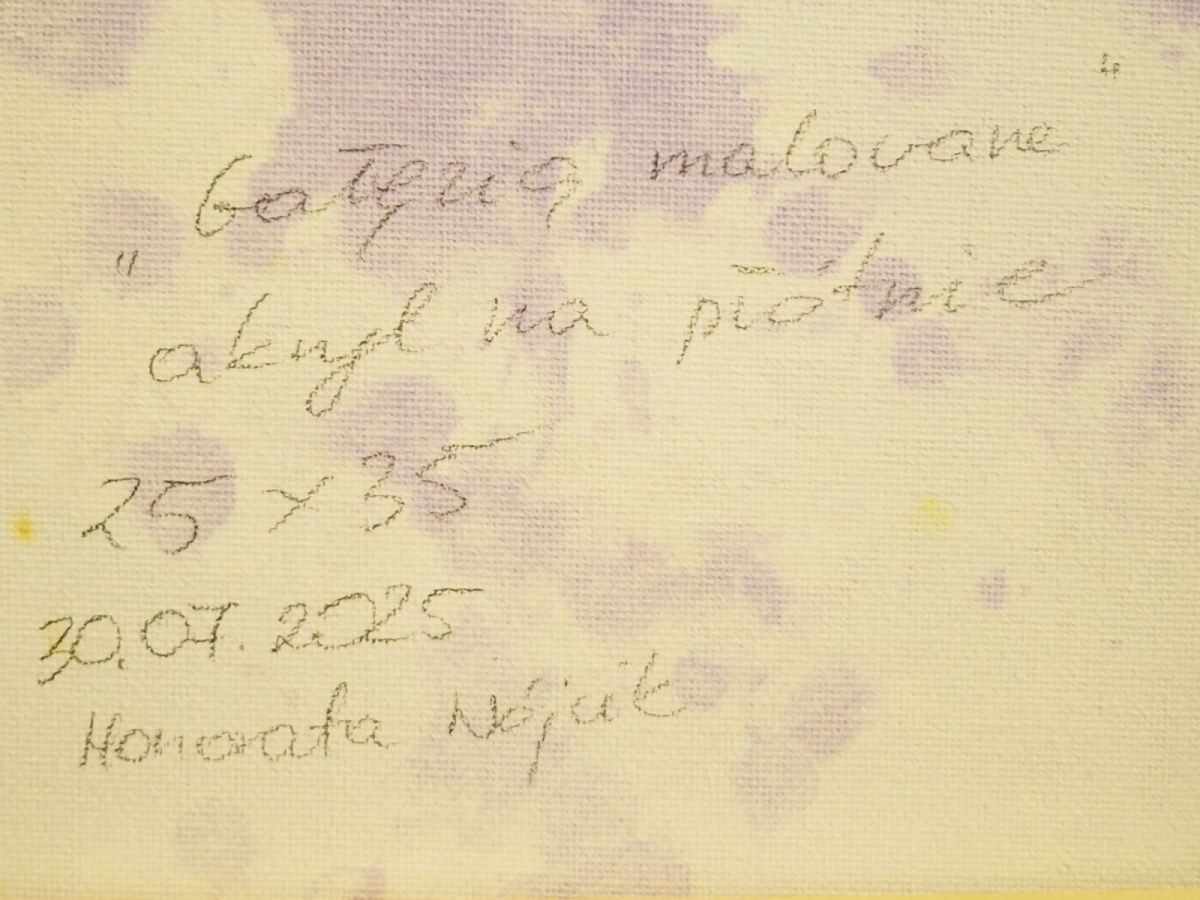 "Gałęzią malowane"
akryl na płótnie
25 x 35
30.07.2025
Honorata Wójcik